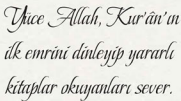 Yüce Allah, Kur'ân'ın
ilk emrini dinleyip yararlı
kitaplar okuyanları sever.